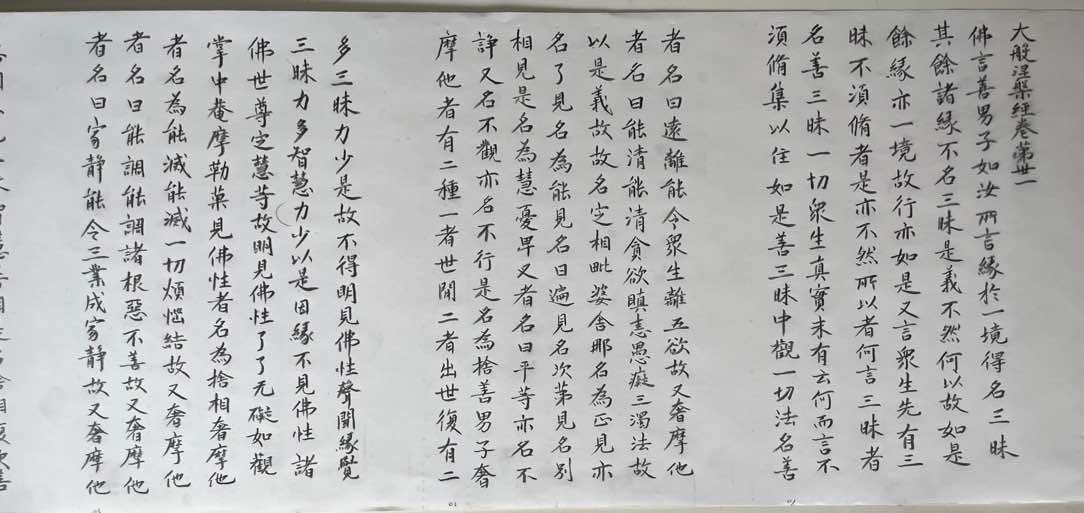 大般涅槃經卷第卅一
佛言善男子如汝所言緣於一境得名三昧
其餘諸緣不名三昧是義不然何以故如是
餘緣亦一境故行亦如是又言眾生先有三
昧不須脩者是亦不然所以者何言三昧者
名善三昧一切眾生真實未有云何而言不
須脩集以住如是善三昧中觀一切法名善
者名曰遠離能令眾生離五欲故又奢摩他
者名曰能清能清貪欲瞋恚愚癡三濁法故
以是義故故名定相毗婆舍那名為正見亦
名了見名為能見名曰遍見名次第見名別
相見是名為慧憂畢叉者名曰平等亦名不
諍又名不觀亦名不行是名為捨善男子奢
摩他者有二種一者世間二者出世復有二
多三昧力少是故不得明見佛性聲聞緣覺
三昧力多智慧力少以是因緣不見佛性諸
佛世尊定慧等故明見佛性了了无礙如觀
掌中菴摩勒菓見佛性者名為捨相奢摩他
者名為能滅能滅一切煩惱結故又奢摩他
者名曰能調能調諸根惡不善故又奢摩他
者名曰寂靜能令三業成寂靜故又奢摩他